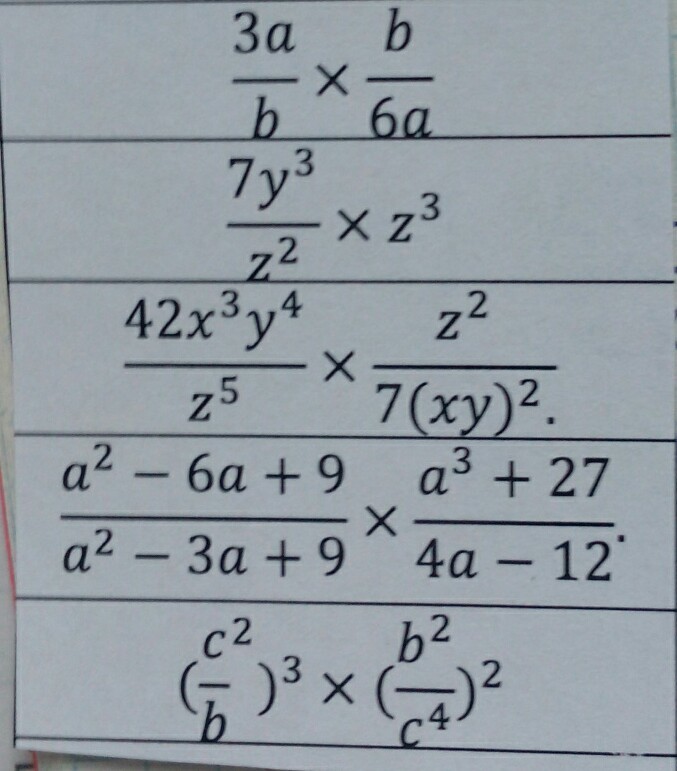 3a/b × b/6a
7y³/z² × z³
42x³y⁴/z⁵ × z²/7(xy)².
a² − 6a + 9/a² − 3a + 9 × a³ + 27/4a − 12.
(c²/b)³ × (b²/c⁴)²